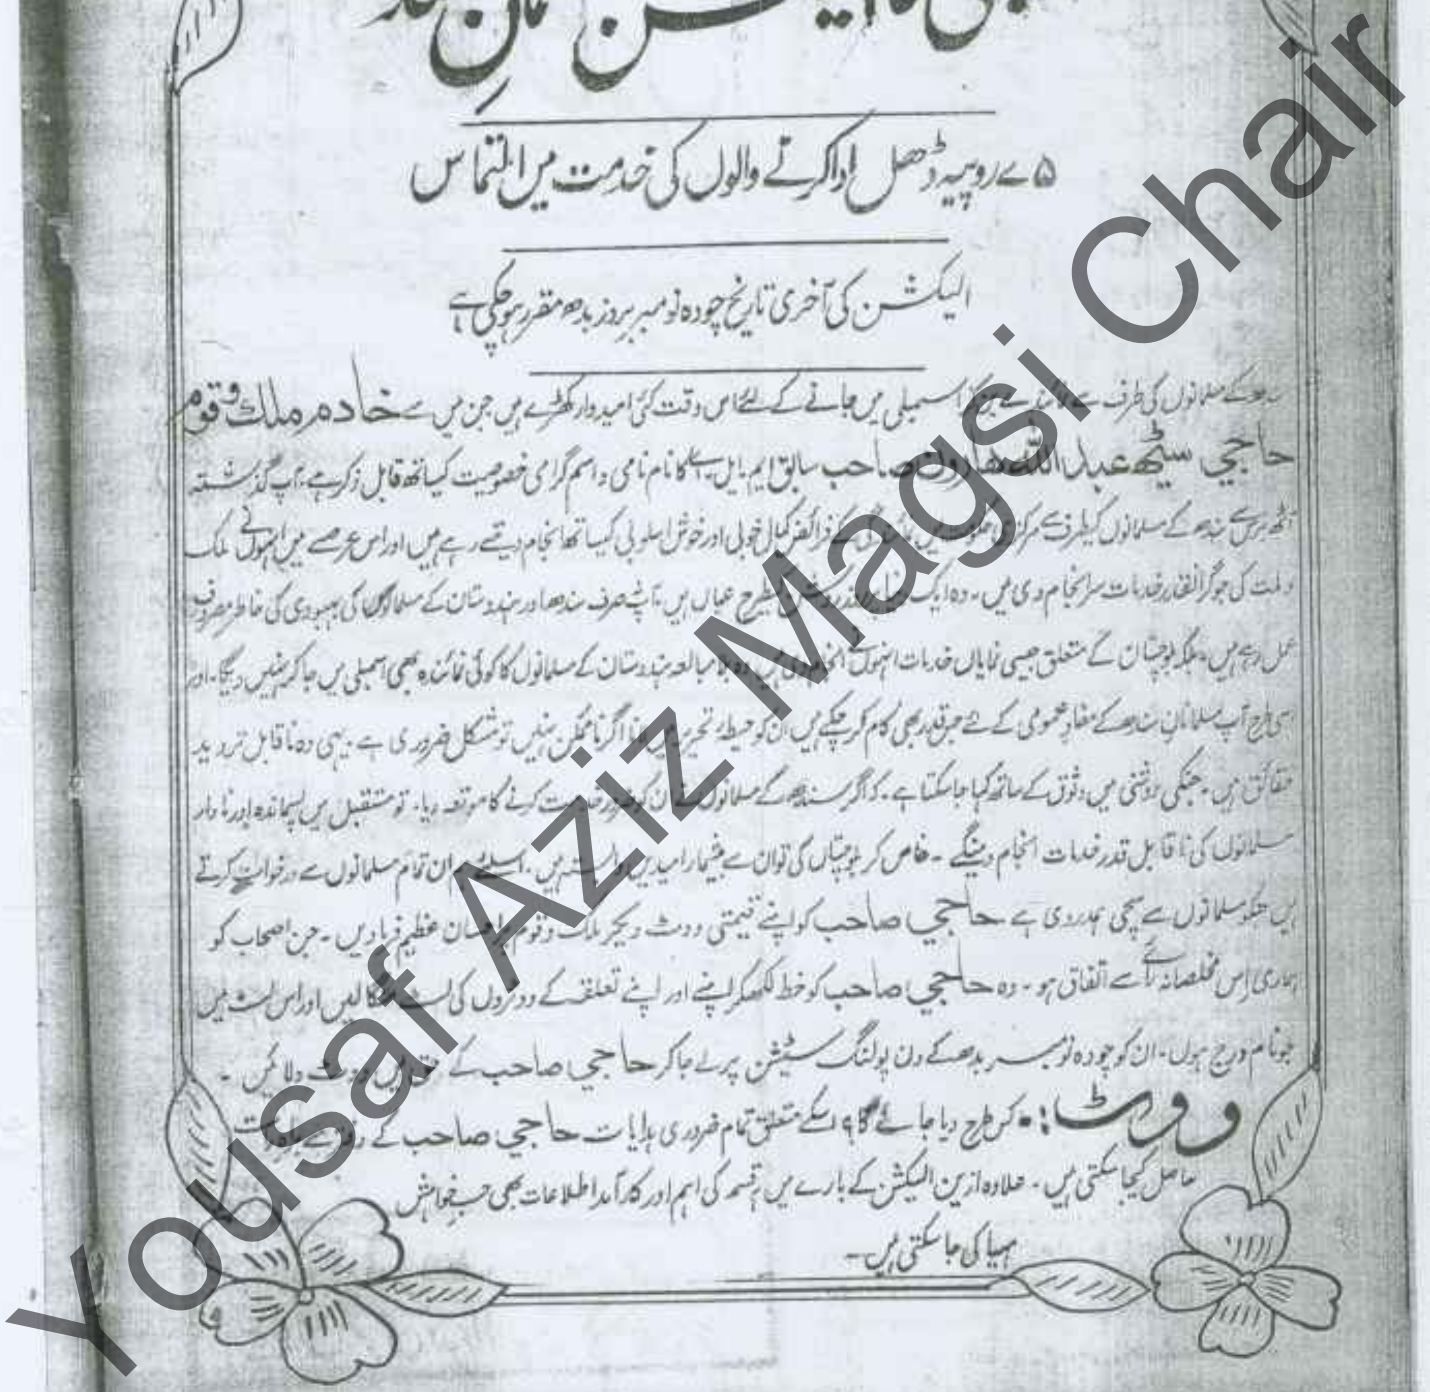 ۷۵ روپیہ ڈھل ادا کرنے والوں کی خدمت میں التماس
الیکشن کی آخری تاریخ چودہ نومبر بروز بدھ مقرر ہو چکی ہے
کے مسلمانوں کی طرف سے اسمبلی میں جانے کے لئے اس وقت کئی امیدوار کھڑے ہیں جن میں سے خادم ملک و قوم
حاجی سیٹھ عبد اللہ ھارون صاحب سابق ایم۔ایل۔اے کا نام نامی و اسم گرامی خصوصیت کیساتھ قابل ذکر ہے۔ آپ گذشتہ
سندھ کے مسلمانوں کیطرف سے کے فرائض کمال خوبی اور خوش اسلوبی کیساتھ انجام دیتے رہے ہیں اور اس عرصے میں انہوں نے ملک
و ملت کی جو گرانقدر خدمات سرانجام دی ہیں۔ وہ ایک طرح عیاں ہیں۔ آپ نہ صرف سندھ اور ہندوستان کے مسلمانوں کی بہبودی کی خاطر مصروف
عمل رہے ہیں۔ بلکہ بلوچستان کے متعلق جیسی نمایاں خدمات انہوں نے انجام دی ہیں وہ بلا مبالغہ ہندوستان کے مسلمانوں کا کوئی نمائندہ بھی اسمبلی میں جا کر نہیں دیگا۔ اور
اسی طرح آپ مسلمانان سندھ کے مفاد عمومی کے لئے جسقدر بھی کام کر چکے ہیں ان کو حیطۂ تحریر میں لانا اگر ناممکن نہیں تو مشکل ضروری ہے۔ یہی وہ ناقابل تردید
حقائق ہیں۔ جنکی روشنی میں وثوق کے ساتھ کہا جا سکتا ہے۔ کہ اگر سندھ کے مسلمانوں نے ان کو خدمت کرنے کا موقعہ دیا۔ تو مستقبل میں پسماندہ اور نادار
مسلمانوں کی ناقابل قدر خدمات انجام دینگے۔ خاص کر بلوچستاں کی توان سے بیشمار امیدیں وابستہ ہیں۔ اسلئے ہم ان تمام مسلمانوں سے درخواست کرتے
ہیں جنکو مسلمانوں سے سچی ہمدردی ہے حاجی صاحب کو اپنے قیمتی ووٹ دیکر ملک و قوم پر احسان عظیم فرماویں۔ جن اصحاب کو
ہماری اِس مخلصانہ رائے سے اتفاق ہو۔ وہ حاجی صاحب کو خط لکھکر اپنے اور اپنے تعلقہ کے ووٹروں کی لسٹ منگا لیں اور اس لسٹ میں
جو نام درج ہوں۔ ان کو چودہ نومبر بدھ کے دن پولنگ سٹیشن پر لے جا کر حاجی صاحب کے حق میں ووٹ دلائیں۔
ووٹ:۔ کس طرح دیا جائے گا؟ اسکے متعلق تمام ضروری ہدایات حاجی صاحب کے دفتر سے
حاصل کیجا سکتی ہیں۔ علاوہ ازین الیکشن کے بارے میں ہر قسم کی اہم اور کارآمد اطلاعات بھی حسب خواہش
مہیا کی جا سکتی ہیں۔
Yousaf Aziz Magsi Chair